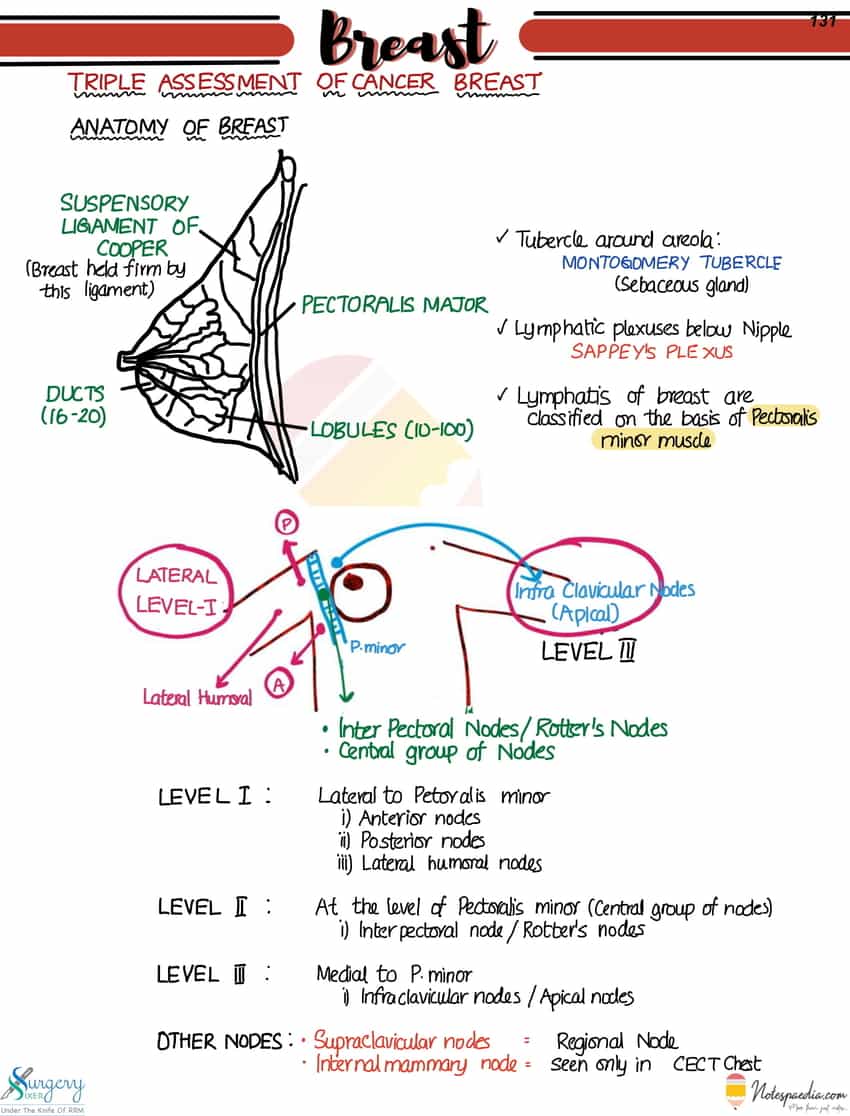 131
Breast
TRIPLE ASSESSMENT OF CANCER BREAST
ANATOMY OF BREAST
SUSPENSORY
LIGAMENT OF
COOPER
(Breast held firm by
this ligament)
PECTORALIS MAJOR
DUCTS
(16-20)
LOBULES (10-100)
✓ Tubercle around areola:
MONTOGOMERY TUBERCLE
(Sebaceous gland)
✓ Lymphatic plexuses below Nipple
SAPPEY'S PLEXUS
✓ Lymphatis of breast are
classified on the basis of Pectoralis
minor muscle
P
LATERAL
LEVEL-I
Infra Clavicular Nodes
(Apical)
LEVEL III
P.minor
A
Lateral Humoral
• Inter Pectoral Nodes/Rotter's Nodes
• Central group of Nodes
LEVEL I : Lateral to Petoralis minor
i) Anterior nodes
ii) Posterior nodes
iii) Lateral humoral nodes
LEVEL II : At the level of Pectoralis minor (Central group of nodes)
i) Interpectoral node/Rotter's nodes
LEVEL III : Medial to P.minor
i) Infraclavicular nodes / Apical nodes
OTHER NODES: • Supraclavicular nodes = Regional Node
• Internal mammary node = seen only in CECT Chest
Surgery
SIXER
Under The Knife Of RRM
Notespaedia.com